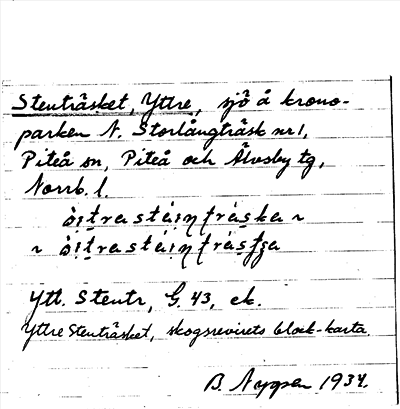 Stenträsket, Yttre, sjö å krono-
parken N. Storlångträsk nr 1,
Piteå sn, Piteå och Älvsby tg,
Norrb. l.
ò̩i̩t̩rastáin̩tráska ~
~ ò̩i̩t̩rastáin̩trásʈʂa
Ytt. Stentr, G. 43, ek.
Yttre Stenträsket, skogsrevirets block-karta.
1934.